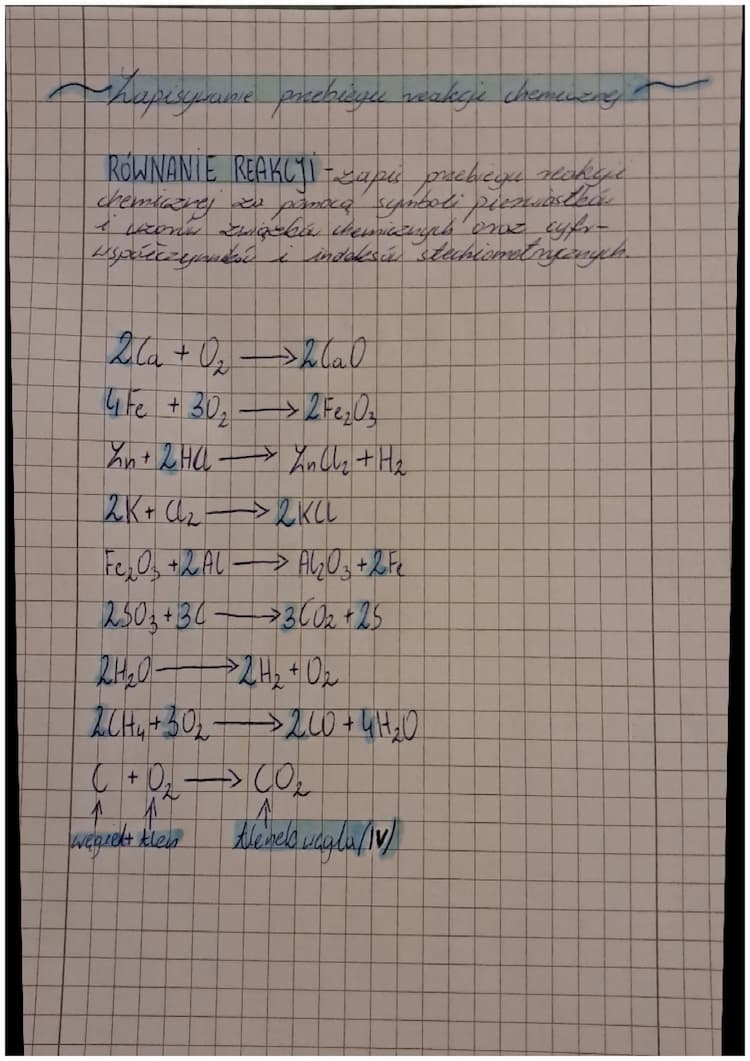 Zapisywanie przebiegu reakcji chemicznej
RÓWNANIE REAKCJI - zapis przebiegu reakcji
chemicznej za pomocą symboli pierwiastków
i wzorów związków chemicznych oraz cyfr-
współczynników i indeksów stechiometrycznych.
2Ca + O₂ → 2CaO
4Fe + 3O₂ → 2Fe₂O₃
Zn + 2HCl → ZnCl₂ + H₂
2K + Cl₂ → 2KCl
Fe₂O₃ + 2Al → Al₂O₃ + 2Fe
2SO₃ + 3C → 3CO₂ + 2S
2H₂O → 2H₂ + O₂
2CH₄ + 3O₂ → 2CO + 4H₂O
C + O₂ → CO₂
węgiel + tlen tlenek węgla (IV)